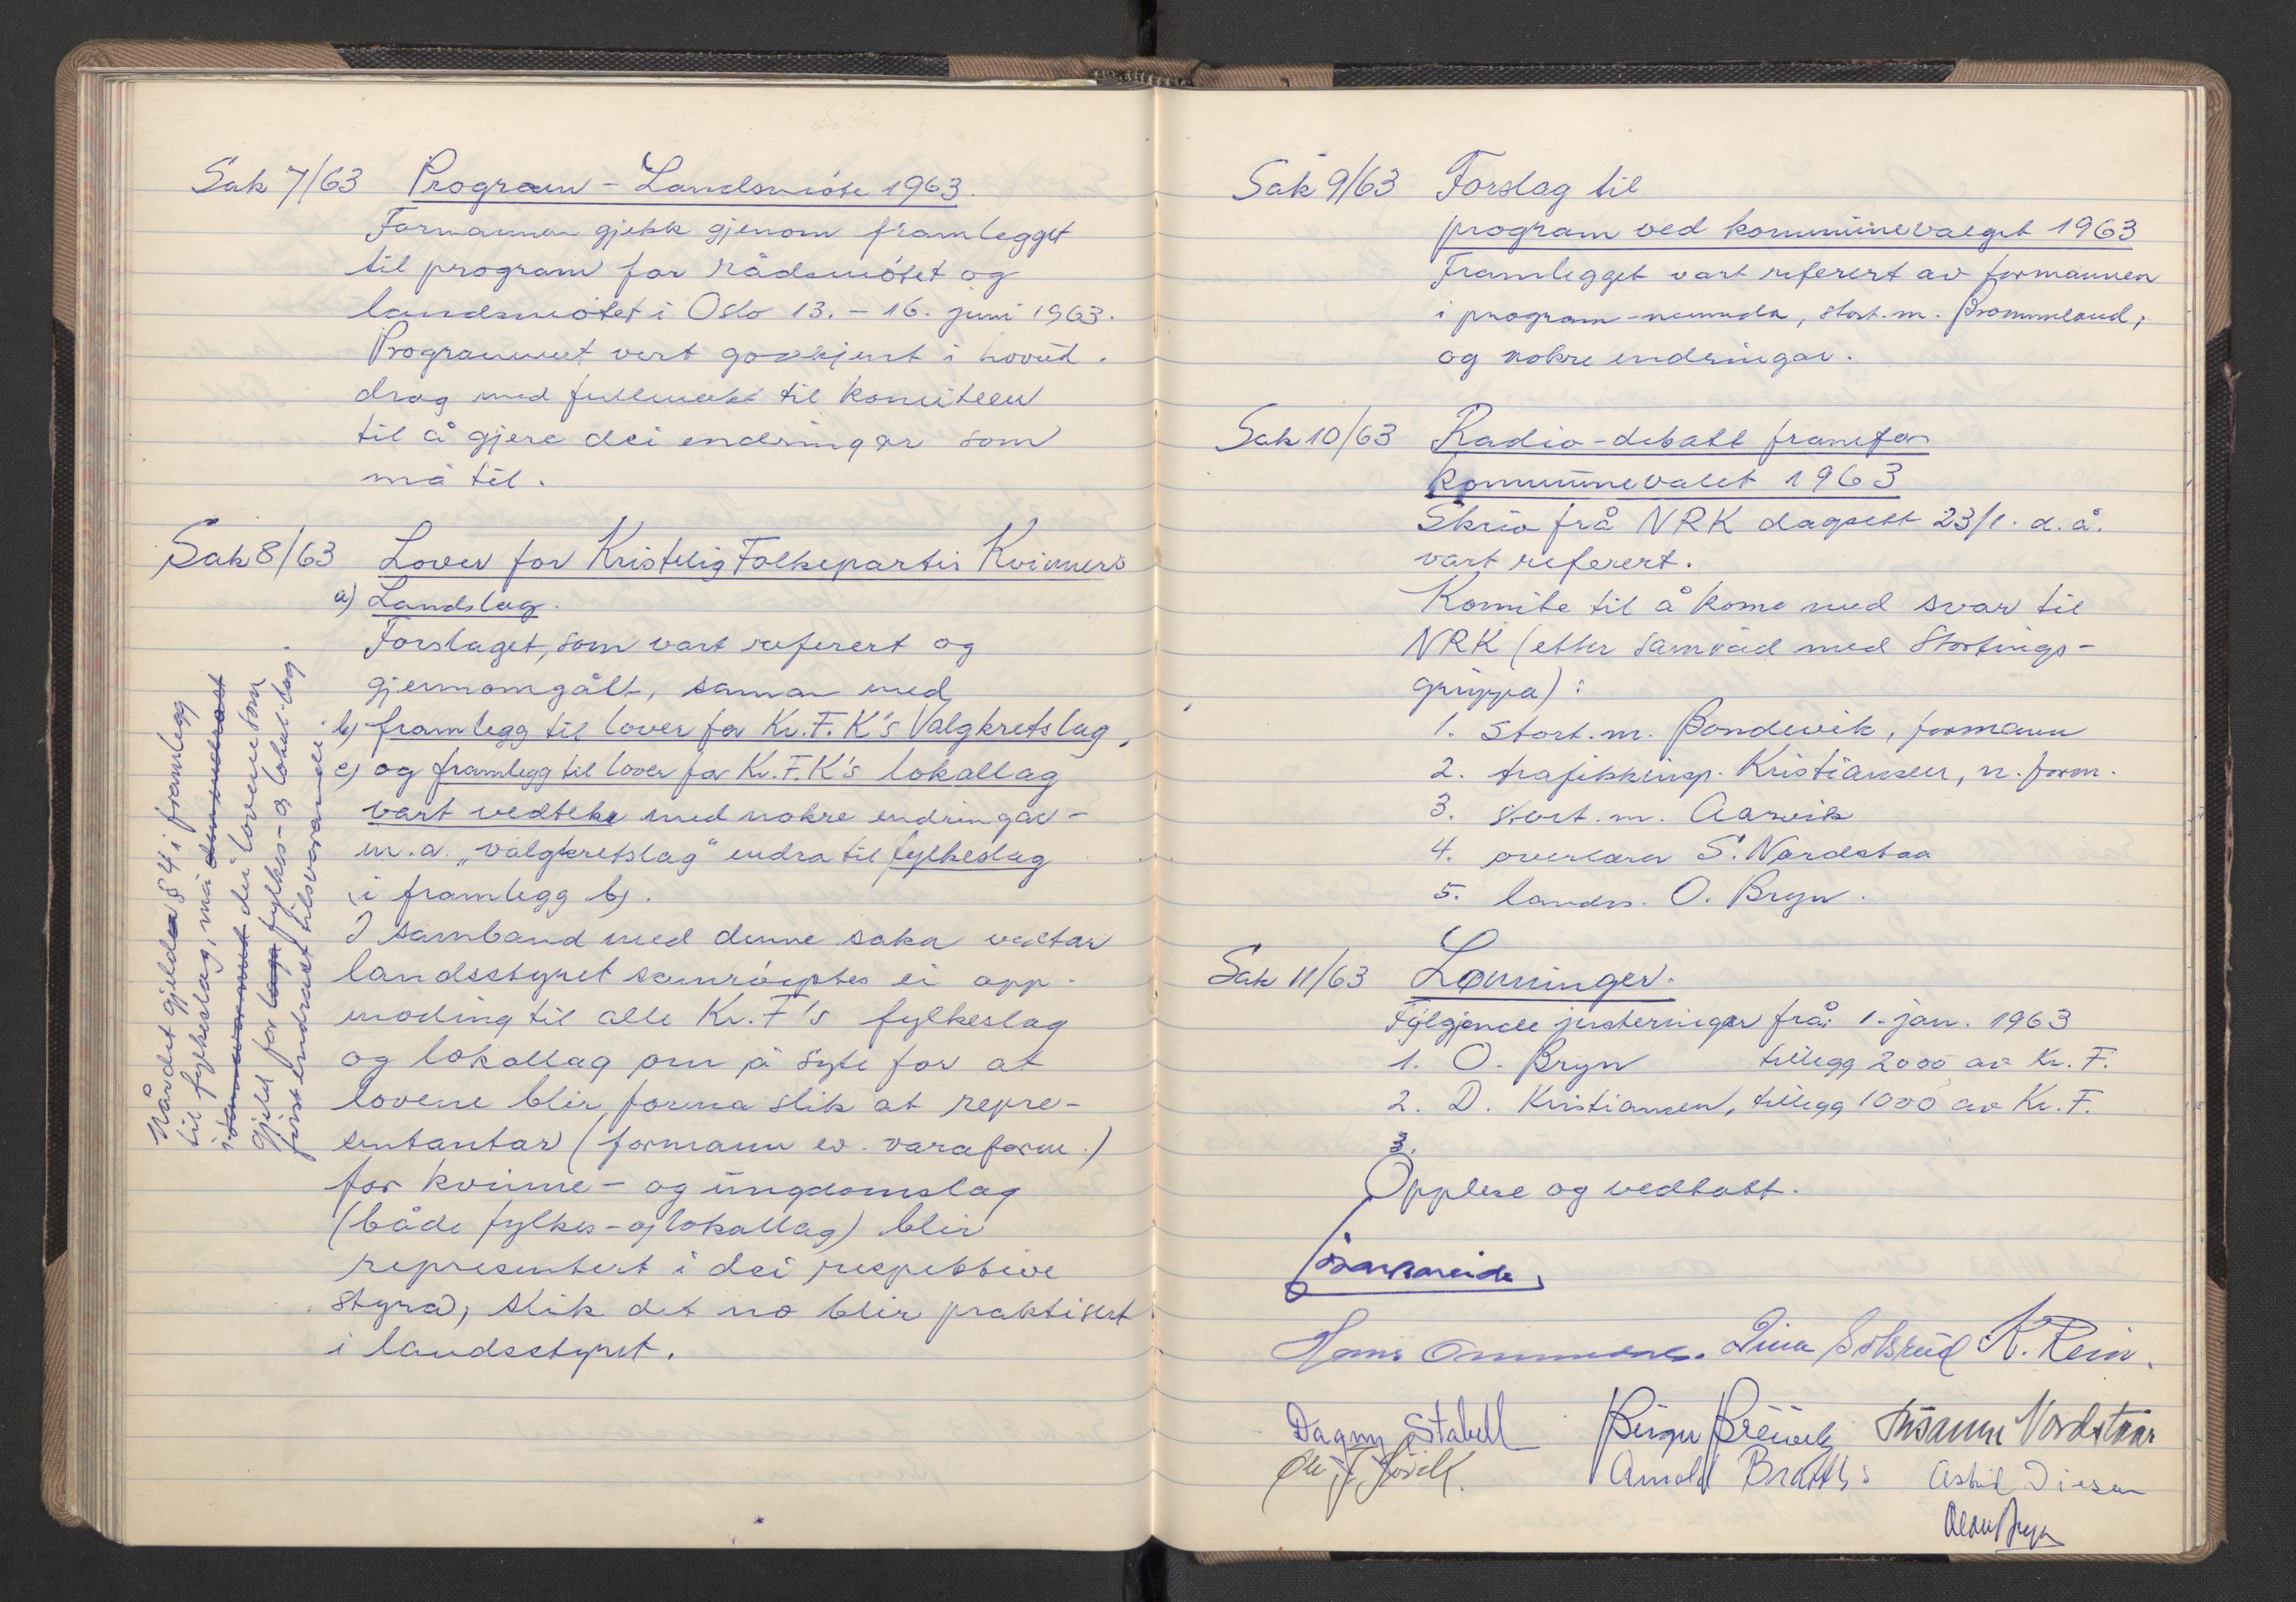 Sak 7/63 Program - Landsmøte 1963.
Formannen gjekk gjenom framlegget
til program for rådsmøtet og
landsmøtet i Oslo 13. - 16. juni 1963.
Programmet vert godkjent i hovud-
drag med fullmakt til komiteen
til å gjere dei endringar som
må til.
Sak 8/63 Lover for Kristelig Folkepartis Kvinners
a) Landslag.
Forslaget, som vart referert og
gjennomgått, saman med
b) framlegg til lover for Kr.F.K's Valgkretslag,
c) og framlegg til lover for Kr.F.K's lokallag
vart vedteke med nokre endringar -
m.a. „valgkretslag" endra til fylkeslag
i framlegg b).
I samband med denne saka vedtar
landsstyret samrøystes ei opp-
moding til alle Kr.F's fylkeslag
og lokallag om å syte for at
lovene blir forma slik at repre-
sentantar (formann ev. varaform.)
for kvinne- og ungdomslag
(både fylkes- og lokallag) blir
representert i dei respektive
styra, slik det no blir praktisert
i landsstyret.
Når det gjeld § 4 i framlegg
til fylkeslag, må dem endrast
i samsvar med dei lovene som
gjeld for laga fylkes- og lokal-lag
først endrast tilsvarande.
Sak 9/63 Forslag til
program ved kommunevalget 1963
Framlegget vart referert av formannen
i program-nemnda, stort.m. Brommeland,
og nokre endringar.
Sak 10/63 Radio-debatt framfor
kommunevalet 1963
Skriv frå NRK dagsett 23/1. d.å.
vart referert.
Komite til å kome med svar til
NRK (etter samråd med Stortings-
gruppa):
1. Stort.m. Bondevik, formann
2. trafikkinsp. Kristiansen, n.form.
3. stort.m. Aarvik
4. overlærar S. Nordstaa
5. landss. O. Bryn.
Sak 11/63 Lønninger.
Følgjende justeringar frå 1. jan. 1963
1. O. Bryn tillegg 2000 av Kr.F.
2. D. Kristiansen, tillegg 1000 av Kr.F.
3.
Opplese og vedtatt.
Hans Ommedal. Dina Solsrud K. Rein.
Dagny Stabell Birger Breivik Susanne Nordstaa
Ole J. Arnold Astrid Diesen
Olav Bryn